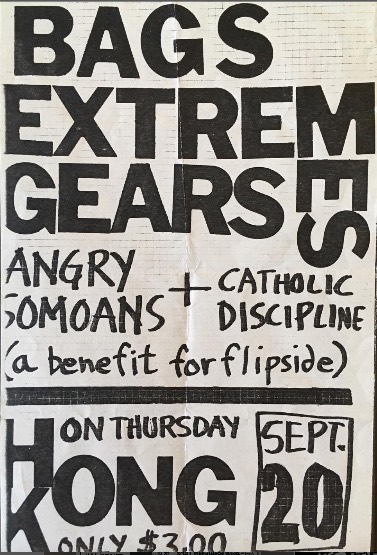 BAGS
EXTREMES
GEARS
ANGRY
SOMOANS
+ CATHOLIC
DISCIPLINE
(a benefit for flipside)
ON THURSDAY
HONG
SEPT.
20
K
ONLY $3.00